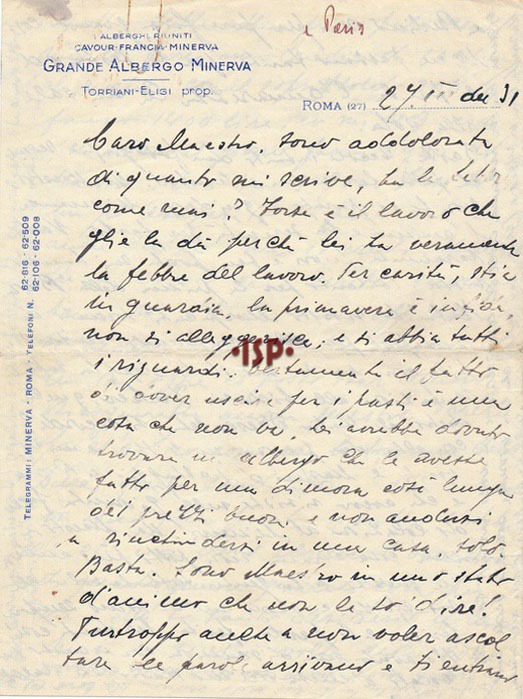 e Paris
ALBERGHI RIUNITI
CAVOUR-FRANCIA-MINERVA
GRANDE ALBERGO MINERVA
TORRIANI-ELISI prop.
ROMA (27) 27 III del 31
Caro Maestro, sono addolorata
di quanto mi scrive, ha la febbre
come mai? Forse è il lavoro che
glie la dà perchè lei ha veramente
la febbre del lavoro. Per carità, stia
in guardia, la primavera è infida,
non si alleggerisca, e si abbia tutti
i riguardi. Certamente il fatto
di dover uscire per i pasti è una
cosa che non va, lei avrebbe dovuto
trovare un albergo che le avesse
fatto per una dimora così lunga
dei prezzi buoni e non andarsi
a rinchiudersi in una casa, solo.
Basta. Sono Maestro in uno stato
d'animo che non le so dire!
Purtroppo anche a non voler ascol
tare le parole arrivano e si entrano
TELEGRAMMI: MINERVA - ROMA - TELEFONI N. 62-816 - 62-509
62-106 - 62-008
ISP